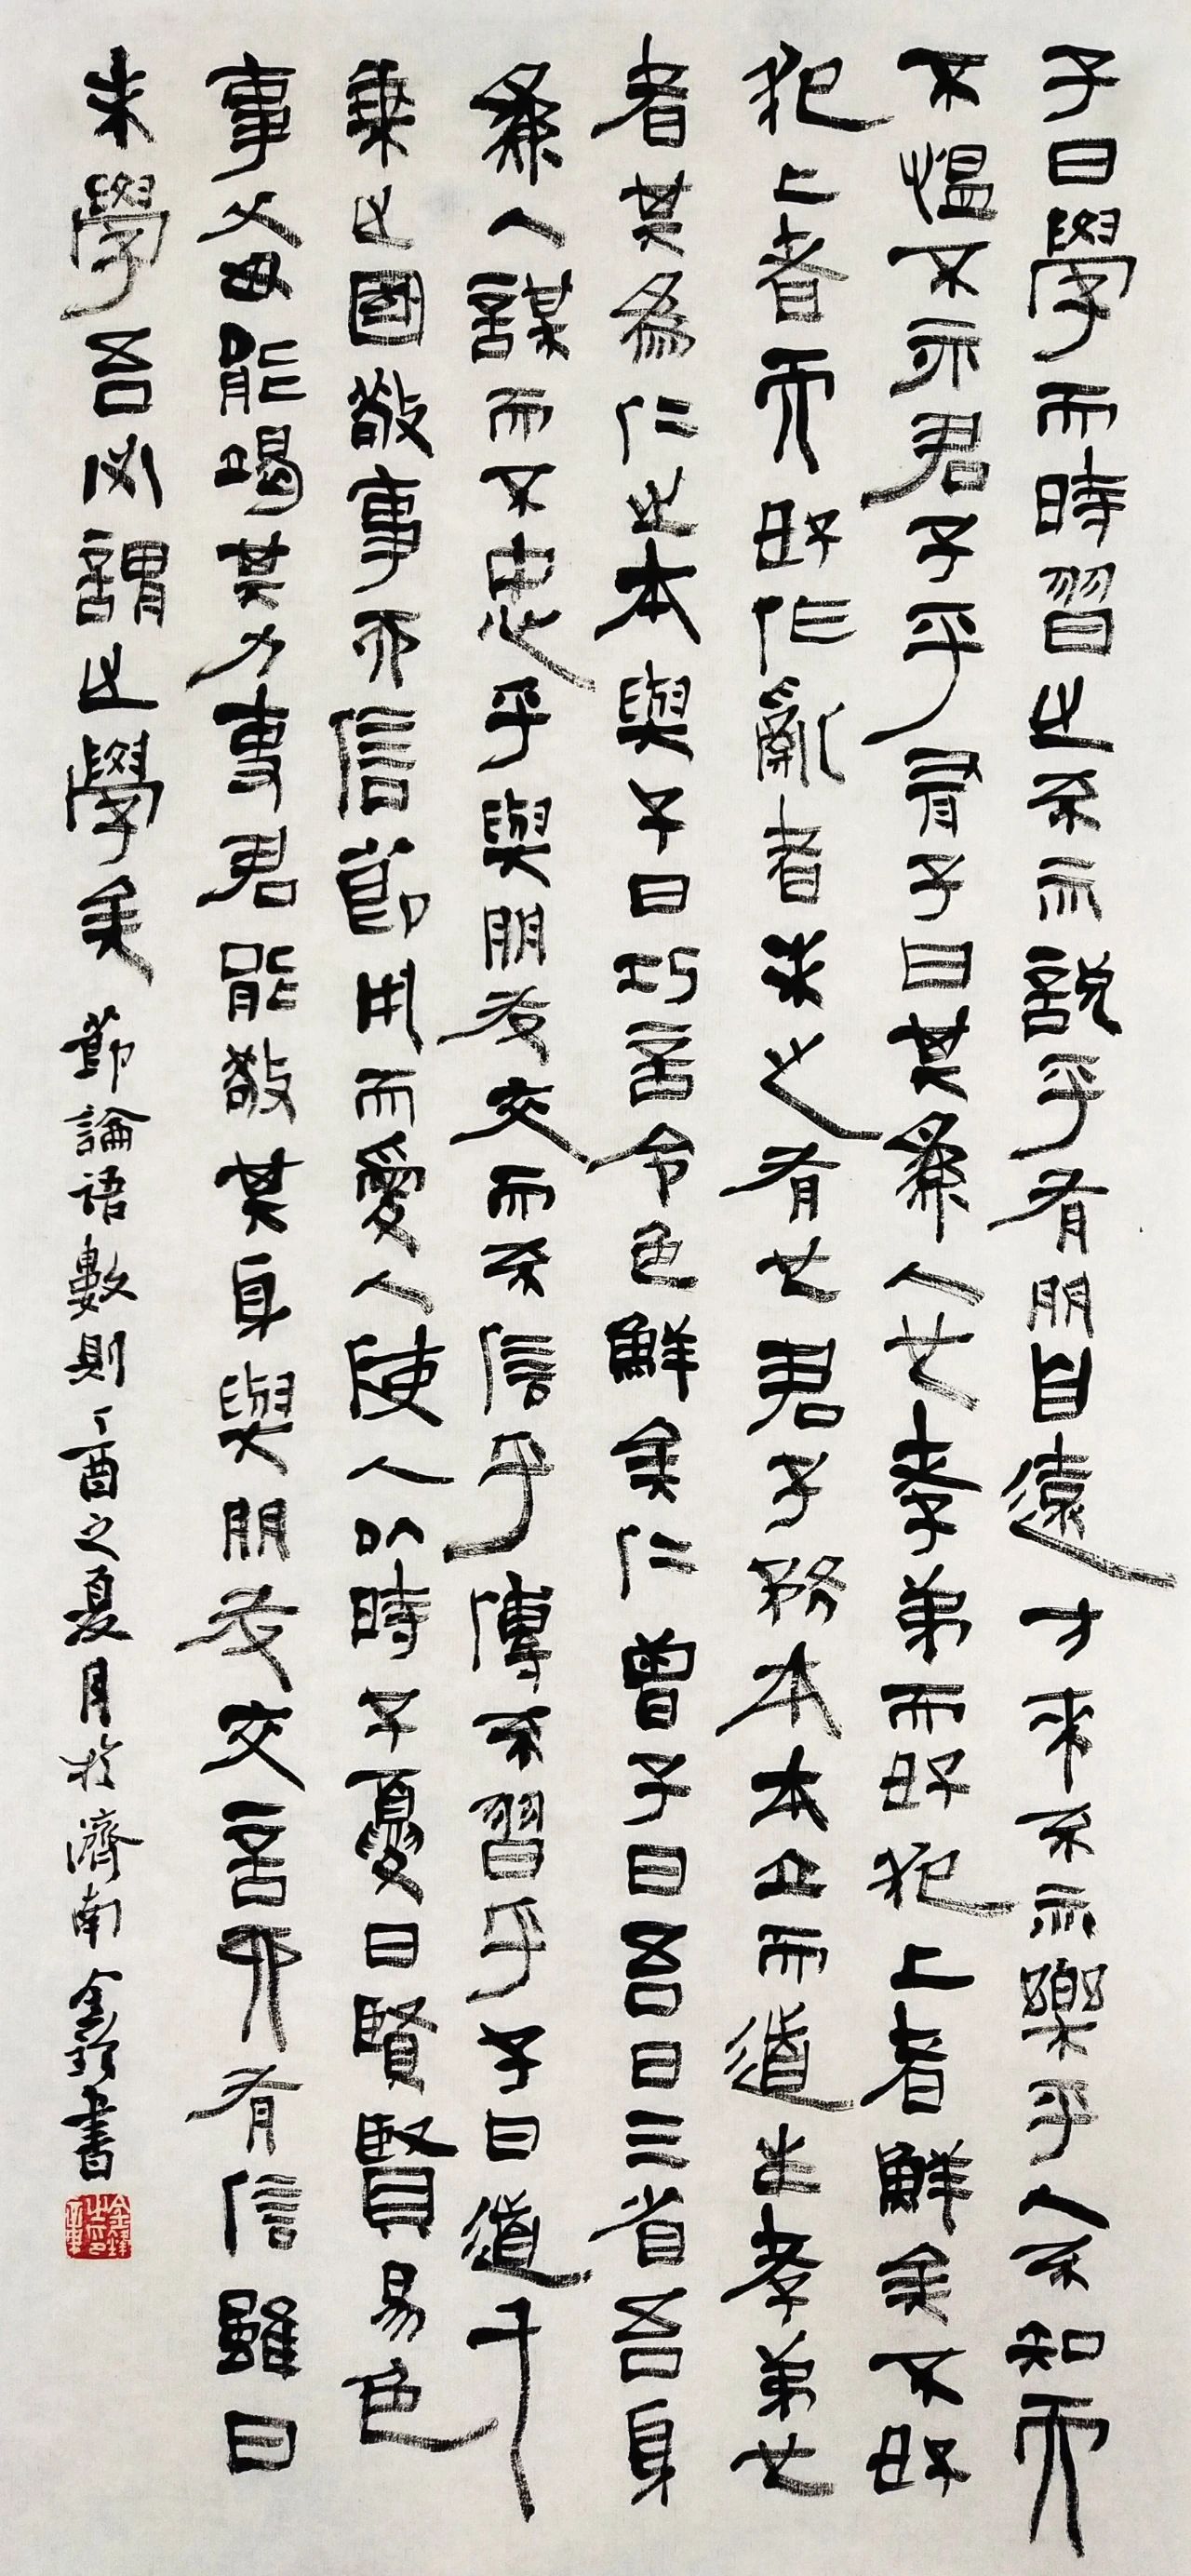 子曰學而時習之不亦說乎有朋自遠方來不亦樂乎人不知而
不慍不亦君子乎有子曰其為人也孝弟而好犯上者鮮矣不好
犯上者而好作亂者未之有也君子務本本立而道生孝弟也
者其為仁之本與子曰巧言令色鮮矣仁曾子曰吾日三省吾身
為人謀而不忠乎與朋友交而不信乎傳不習乎子曰道千
乘之國敬事而信節用而愛人使人以時子夏曰賢賢易色
事父母能竭其力事君能敬其身與朋友交言而有信雖曰
未學吾必謂之學矣 節論語數則丁酉之夏月於濟南金鋒書